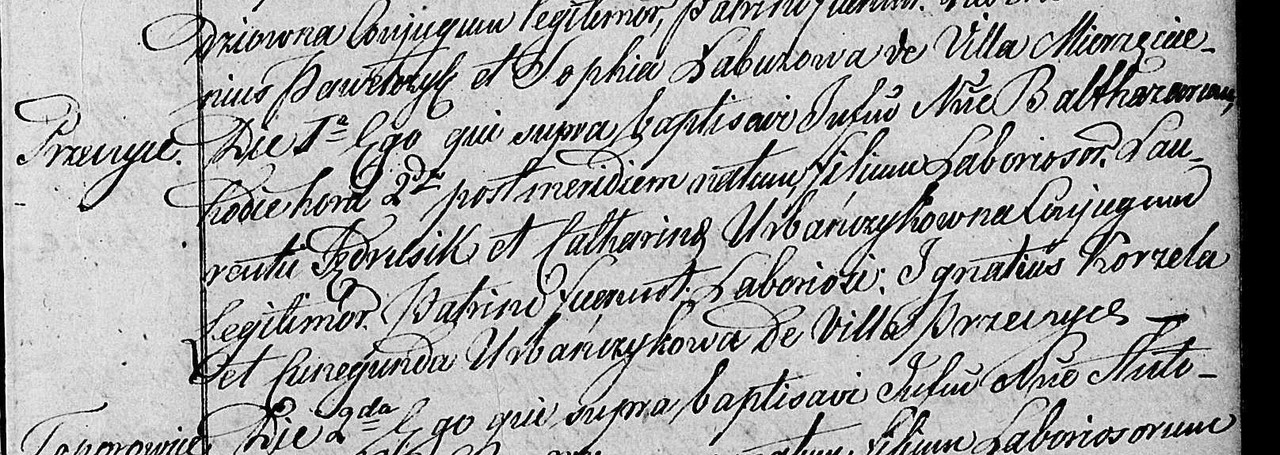 dziowna Conjugum legitimor, Patrini fuerunt
nius Pawełczyk et Sophia Łabuzowa de Villa Mierzęcice_
Przeczyce. Die 1ª Ego qui supra baptisavi Infūm Nūe Balthazarum,
hodie hora 2da post meridiem natum, filium Laboriosor. Lau_
rentii Jędrusik et Catharinę Urbańczykowna Conjugum
Legitimor. Patrini fuerunt. Laboriosi: Ignatius Korzela
et Cunegunda Urbańczykowa de Villa Przeczyce _
Die 2da Ego qui supra baptisavi Infūm Nūe Anto_
Toporowice natum, filium Laboriosorum